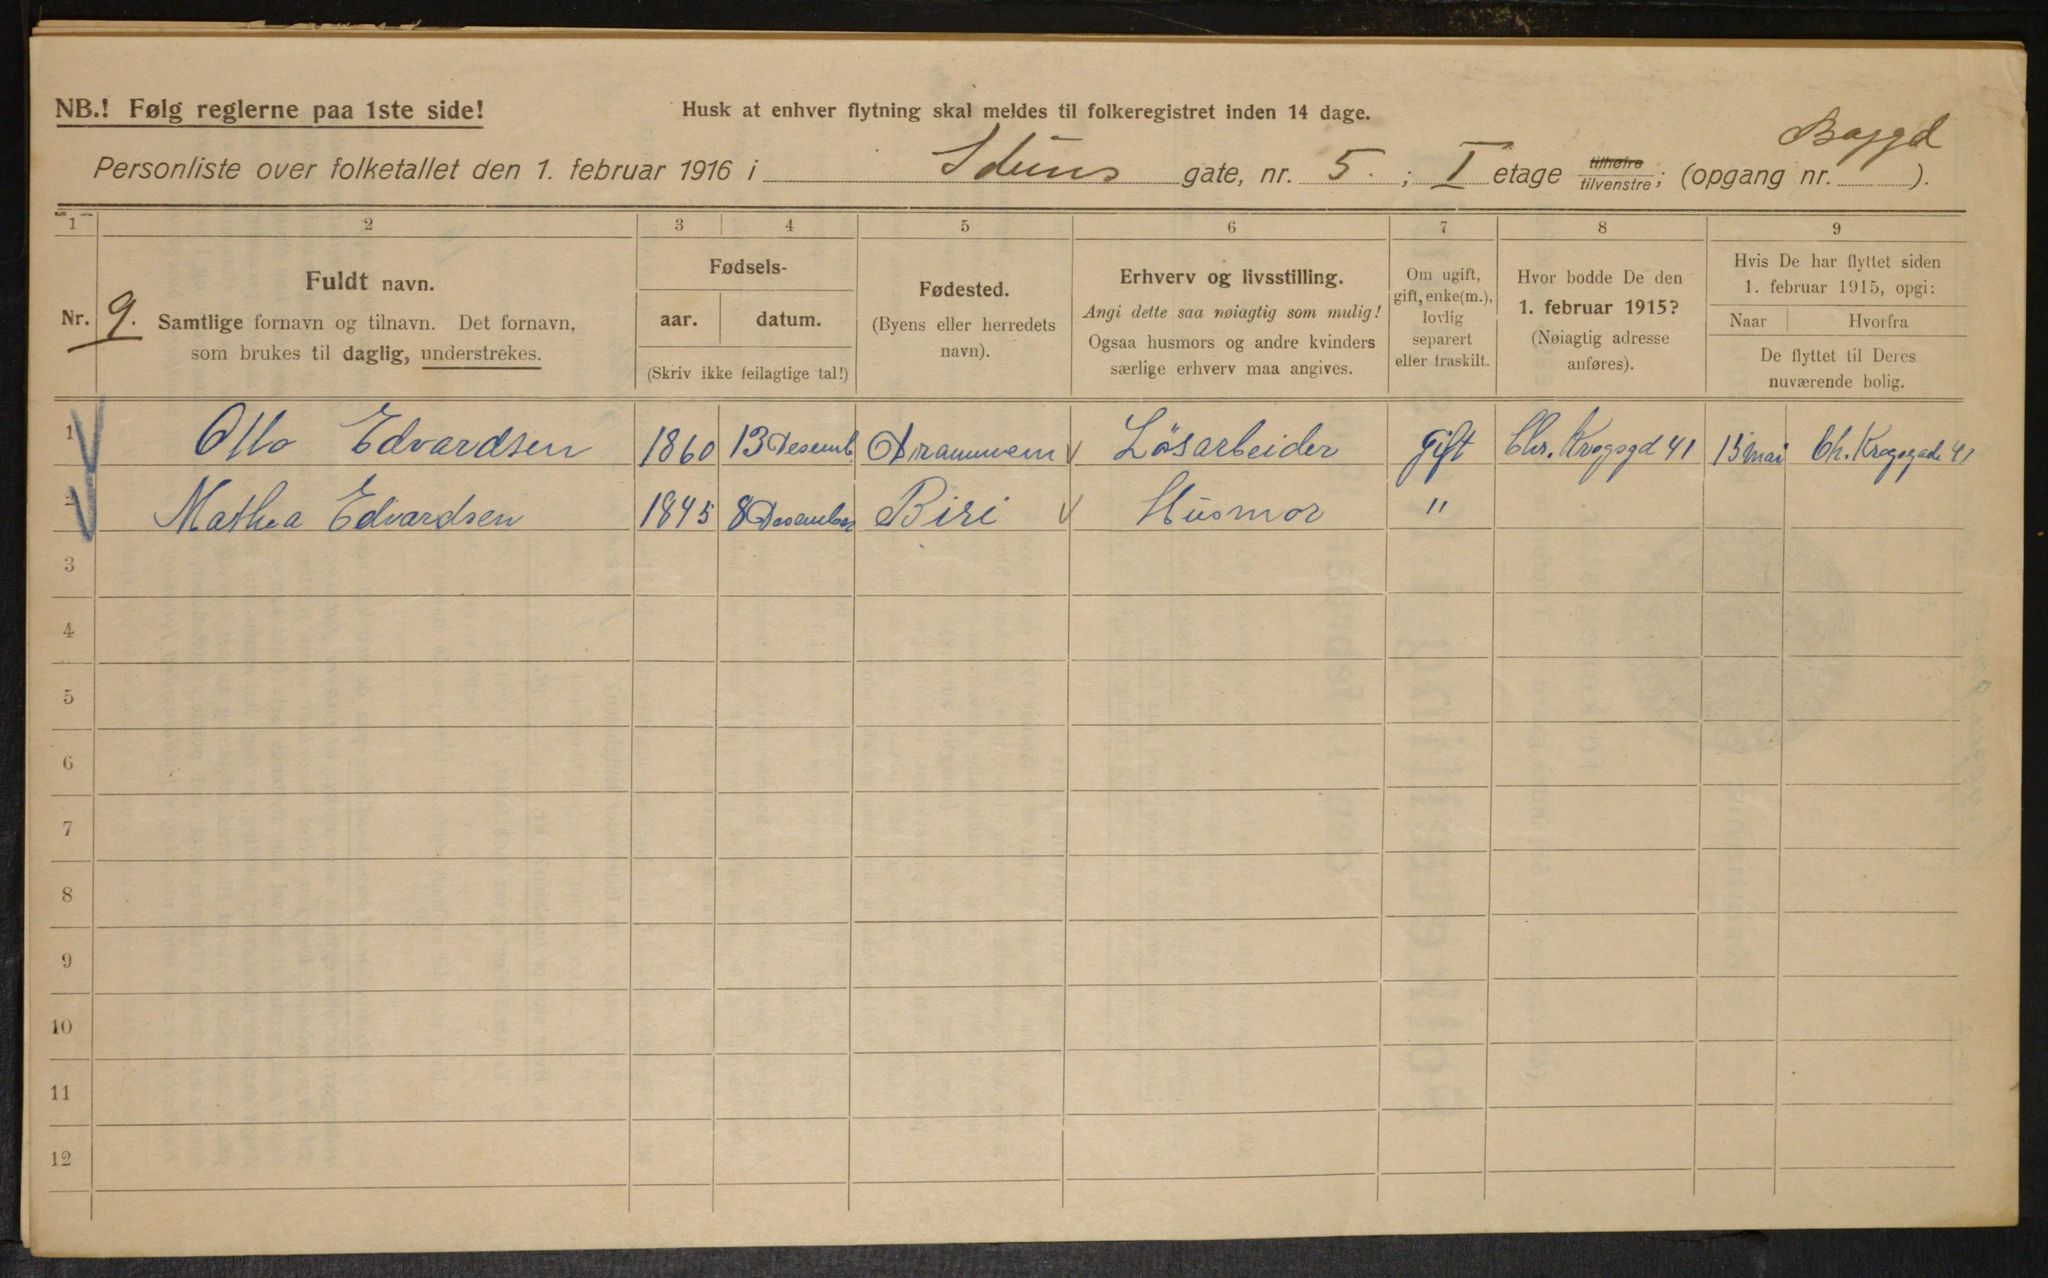 NB.! Følg reglerne paa 1ste side!
Husk at enhver flytning skal meldes til folkeregistret inden 14 dage.
Personliste over folketallet den 1. februar 1916 i Iduns gate, nr. 5. ; I etage tilhøire tilvenstre; (opgang nr. Baggd ).
1 2 3 4 5 6 7 8 9
Nr. 9.
Fuldt navn.
Samtlige fornavn og tilnavn. Det fornavn,
som brukes til daglig, understrekes.
Fødsels-
aar. datum.
(Skriv ikke feilagtige tal!)
Fødested.
(Byens eller herredets
navn).
Erhverv og livsstilling.
Angi dette saa nøiagtig som mulig!
Ogsaa husmors og andre kvinders
særlige erhverv maa angives.
Om ugift,
gift, enke(m.),
lovlig
separert
eller fraskilt.
Hvor bodde De den
1. februar 1915?
(Nøiagtig adresse
anføres).
Hvis De har flyttet siden
1. februar 1915, opgi:
Naar Hvorfra
De flyttet til Deres
nuværende bolig.
1 Otto Edvardsen 1860 13 Desemb. Drammem Løsarbeider gift Chr. Krogsgd 41 15 mai Ch. Krogsgade 41
2 Mathea Edvardsen 1845 8 Desember Biri Husmor "
3
4
5
6
7
8
9
10
11
12